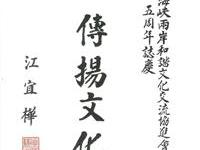 海峽兩岸和諧文化交流協進會
五周年誌慶
傳揚文化
江宜樺